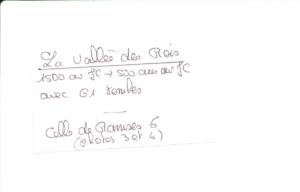 La Vallée des Rois
1500 av JC → 500 ans av JC
avec 61 tombes
Celle de Ramses 6
(photos 3 et 4)